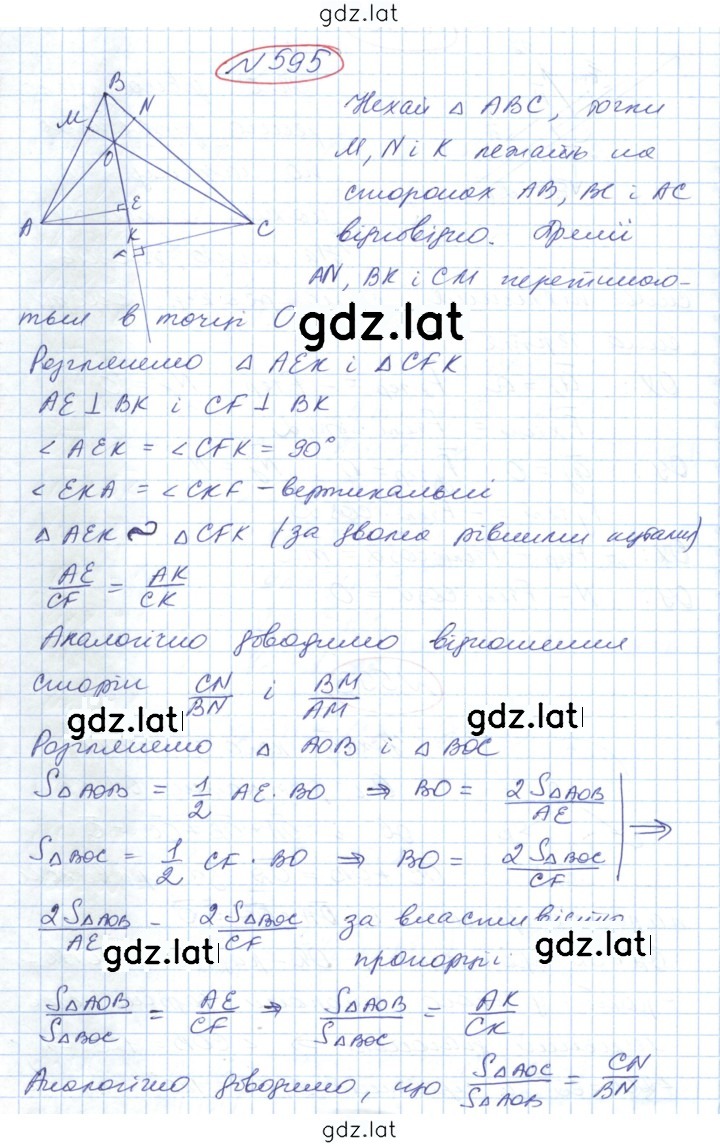 gdz.lat
N 595
B
N
M
O
E
A
K
C
Нехай △ ABC, точки
M, N і K лежать на
сторонах AB, BC і AC
відповідно. Прямі
AN, BK і CM перетинаю-
ться в точці O
gdz.lat
Розглянемо △ AEK і △ CFK
AE ⊥ BK і CF ⊥ BK
∠ AEK = ∠ CFK = 90°
∠ EKA = ∠ CKF – вертикальні
△ AEK ~ △ CFK (за двома рівними кутами)
AE/CF = AK/CK
Аналогічно доводимо відношення
сторін CN/BN і BM/AM
gdz.lat
gdz.lat
Розглянемо △ AOB і △ BOC
S△AOB = 1/2 AE · BO ⇒ BO = 2S△AOB/AE
⇒
S△BOC = 1/2 CF · BO ⇒ BO = 2S△BOC/CF
2S△AOB/AE = 2S△BOC/CF за властивістю
gdz.lat
gdz.lat
пропорції
S△AOB/S△BOC = AE/CF ⇒ S△AOB/S△BOC = AK/CK
Аналогічно доводимо, що S△AOC/S△AOB = CN/BN
gdz.lat